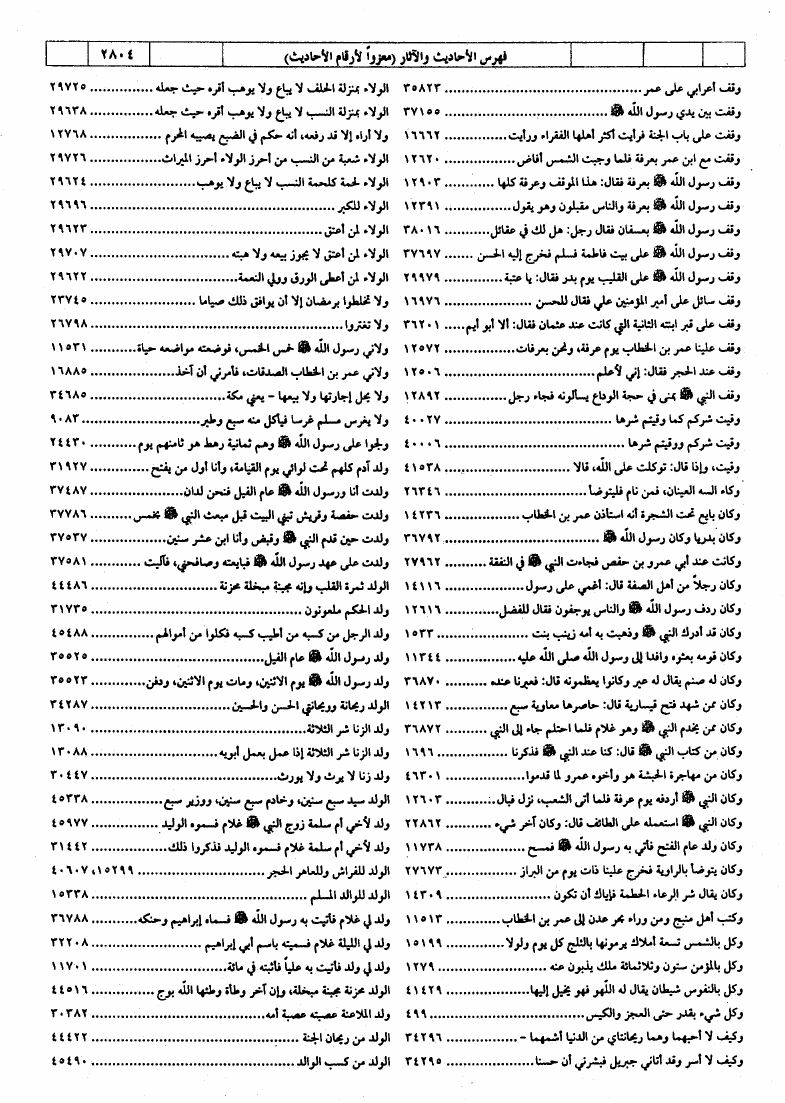 فهرس الأحاديث والآثار (معزواً لأرقام الأحاديث)
٢٨٠٤
وقف أعرابي على عمر ... ٣٥٨٢٣
وقفت بين يدي رسول الله ﷺ ... ٣٧١٥٥
وقفت على باب الجنة فرأيت أكثر أهلها الفقراء ورأيت ... ١٦٦٦٢
وقفت مع ابن عمر بعرفة فلما وجبت الشمس أفاض ... ١٢٦٢٠
وقف رسول الله ﷺ بعرفة فقال: هذا الموقف وعرفة كلها ... ١٢٩٠٣
وقف رسول الله ﷺ بعرفة والناس مقبلون وهو يقول ... ١٢٣٩١
وقف رسول الله ﷺ بعسفان فقال رجل: هل لك في عقائل ... ٣٨٠١٦
وقف رسول الله ﷺ على بيت فاطمة فسلم فخرج إليه الحسن ... ٣٧٦٩٧
وقف رسول الله ﷺ على القليب يوم بدر فقال: يا عتبة ... ٢٩٩٧٩
وقف سائل على أمير المؤمنين علي فقال للحسن ... ١٦٩٧٦
وقف على قبر ابنته الثانية التي كانت عند عثمان فقال: ألا أبو أيم ... ٣٦٢٠١
وقف علينا عمر بن الخطاب يوم عرفة، ونحن بعرفات ... ١٢٥٧٢
وقف عند الحجر فقال: إني لأعلم ... ١٢٥٠٦
وقف النبي ﷺ بمنى في حجة الوداع يسألونه فجاء رجل ... ١٢٨٩٢
وقيت شركم كما وقيتم شرها ... ٤٠٠٢٧
وقيت شركم ووقيتم شرها ... ٤٠٠٠٦
وقيت، وإذا قال: توكلت على الله، قالا ... ٤١٥٣٨
وكاء السه العينان، فمن نام فليتوضأ ... ٢٦٣٤٦
وكان بايع تحت الشجرة أنه استأذن عمر بن الخطاب ... ١٤٢٣٦
وكان بدريا وكان رسول الله ﷺ ... ٣٦٧٩٢
وكانت عند أبي عمرو بن حفص فجاءت النبي ﷺ في النفقة ... ٢٧٩٦٢
وكان رجلاً من أهل الصفة قال: أغمي على رسول ... ١٤١١٦
وكان ردف رسول الله ﷺ والناس يوجفون فقال للفضل ... ١٢٦١٦
وكان قد أدرك النبي ﷺ وذهبت به أمه زينب بنت ... ١٥٣٣
وكان قومه بعثوه وافدا إلى رسول الله صلى الله عليه ... ١١٣٤٤
وكان له صنم يقال له عير وكانوا يعظمونه قال: فعبرنا عنده ... ٣٦٨٧٠
وكان ممن شهد فتح قيسارية قال: حاصرها معاوية سبع ... ١٤٢١٣
وكان ممن يخدم النبي ﷺ وهو غلام فلما احتلم جاء إلى النبي ... ٣٦٨٧٢
وكان من كتاب النبي ﷺ قال: كنا عند النبي ﷺ فذكرنا ... ١٦٩٦
وكان من مهاجرة الحبشة هو وأخوه عمرو لما قدموا ... ٤٦٣٠١
وكان النبي ﷺ أردفه يوم عرفة فلما أتى الشعب، نزل فبال ... ١٢٦٠٣
وكان النبي ﷺ استعمله على الطائف قال: وكان آخر شيء ... ٢٢٨٦٢
وكان ولد عام الفتح فأتي به رسول الله ﷺ فمسح ... ١١٧٣٨
وكان يتوضأ بالراوية فخرج علينا ذات يوم من البراز ... ٢٧٦٧٣
وكان يقال شر الرعاء الحطمة فإياك أن تكون ... ١٤٣٠٩
وكتب أهل منبج ومن وراء بحر عدن إلى عمر بن الخطاب ... ١١٥١٣
وكل بالشمس تسعة أملاك يرمونها بالثلج كل يوم ولولا ... ١٥١٩٩
وكل بالمؤمن ستون وثلاثمائة ملك يذبون عنه ... ١٢٧٩
وكل بالنفوس شيطان يقال له اللهو فهو يخيل إليها ... ٤١٤٢٩
وكل شيء بقدر حتى العجز والكيس ... ٤٩٩
وكيف لا أحبهما وهما ريحانتاي من الدنيا أشمهما - ... ٣٤٢٩٦
وكيف لا أسر وقد أتاني جبريل فبشرني أن حسنا ... ٣٤٢٩٥
الولاء بمنزلة الحلف لا يباع ولا يوهب أقره حيث جعله ... ٢٩٧٢٥
الولاء بمنزلة النسب لا يباع ولا يوهب أقره حيث جعله ... ٢٩٦٣٨
ولا أراه إلا قد رفعه، أنه حكم في الضبع يصيبه المحرم ... ١٢٧٦٨
الولاء شعبة من النسب من أحرز الولاء أحرز الميراث ... ٢٩٧٢٦
الولاء لحمة كلحمة النسب لا يباع ولا يوهب ... ٢٩٦٢٤
الولاء للكبر ... ٢٩٦٩٦
الولاء لمن أعتق ... ٢٩٦٢٣
الولاء لمن أعتق لا يجوز بيعه ولا هبته ... ٢٩٧٠٧
الولاء لمن أعطى الورق وولي النعمة ... ٢٩٦٢٢
ولا تخلطوا برمضان إلا أن يوافق ذلك صياما ... ٢٣٧٤٥
ولا تغتروا ... ٢٦٧٩٨
ولاني رسول الله ﷺ خمس الخمس، فوضعته مواضعه حياة ... ١١٥٣١
ولاني عمر بن الخطاب الصدقات، فأمرني أن آخذ ... ١٦٨٨٥
ولا يحل إجارتها ولا بيعها - يعني مكة ... ٣٤٦٨٥
ولا يغرس مسلم غرسا فيأكل منه سبع وطير ... ٩٠٨٣
ولجوا على رسول الله ﷺ وهم ثمانية رهط هو ثامنهم يوم ... ٢٤٤٣٠
ولد آدم كلهم تحت لوائي يوم القيامة، وأنا أول من يفتح ... ٣١٩٢٧
ولدت أنا ورسول الله ﷺ عام الفيل فنحن لدان ... ٣٧٤٨٧
ولدت حفصة وقريش تبني البيت قبل مبعث النبي ﷺ بخمس ... ٣٧٧٨٦
ولدت حين قدم النبي ﷺ وقبض وأنا ابن عشر سنين ... ٣٧٥٣٧
ولدت على عهد رسول الله ﷺ فبايعته وصافحني، فآليت ... ٣٧٥٨١
الولد ثمرة القلب وإنه مجبنة مبخلة محزنة ... ٤٤٤٨٦
ولد الحكم ملعونون ... ٣١٧٣٥
ولد الرجل من كسبه من أطيب كسبه فكلوا من أموالهم ... ٤٥٤٨٨
ولد رسول الله ﷺ عام الفيل ... ٣٥٥٢٥
ولد رسول الله ﷺ يوم الاثنين، ومات يوم الاثنين، ودفن ... ٣٥٥٢٣
الولد ريحانة وريحانتي الحسن والحسين ... ٣٤٢٨٧
ولد الزنا شر الثلاثة ... ١٣٠٩٠
ولد الزنا شر الثلاثة إذا عمل بعمل أبويه ... ١٣٠٨٨
ولد زنا لا يرث ولا يورث ... ٣٠٤٤٧
الولد سيد سبع سنين، وخادم سبع سنين، ووزير سبع ... ٤٥٣٣٨
ولد لأخي أم سلمة زوج النبي ﷺ غلام فسموه الوليد ... ٤٥٩٧٧
ولد لأخي أم سلمة غلام فسموه الوليد فذكروا ذلك ... ٣١٤٤٢
الولد للفراش وللعاهر الحجر ... ١٥٢٩٩، ٤٠٦٠٧
الولد للوالد المسلم ... ١٥٣٣٨
ولد لي غلام فأتيت به رسول الله ﷺ فسماه إبراهيم وحنكه ... ٣٦٧٨٨
ولد لي الليلة غلام فسميته باسم أبي إبراهيم ... ٣٢٢٠٨
ولد لي ولد فأتيت به علياً فأثبته في مائة ... ١١٧٠١
الولد محزنة مجبنة مبخلة، وإن آخر وطأة وطئها الله بوج ... ٤٤٥١٦
ولد الملاعنة عصبته عصبة أمه ... ٣٠٣٨٢
الولد من ريحان الجنة ... ٤٤٤٢٢
الولد من كسب الوالد ... ٤٥٤٩٠